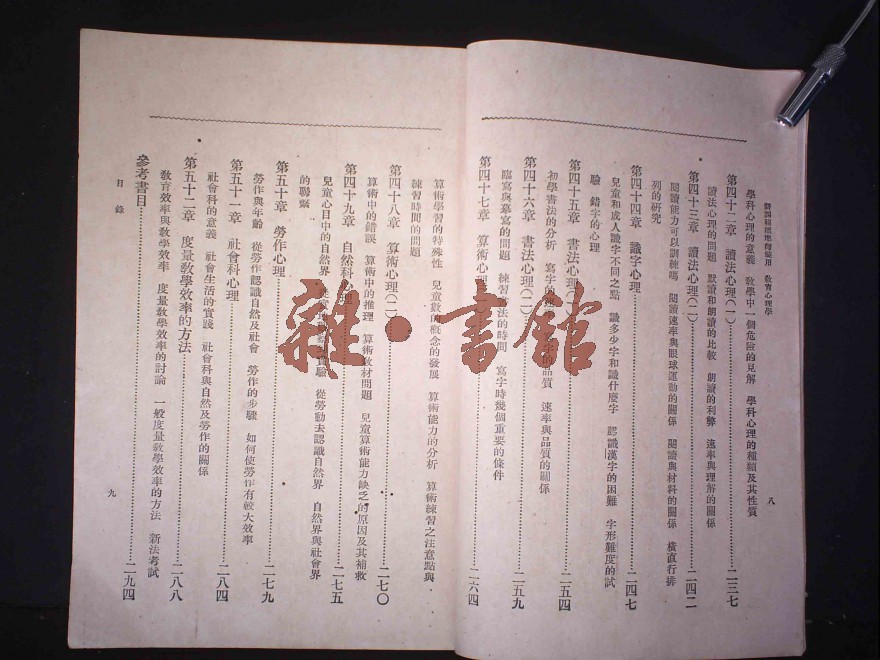 教育心理學
八
學科心理的意義　教學中一個危險的見解　學科心理的種類及其性質
第四十二章　讀法心理(一)……二三七
讀法心理的問題　默讀和朗讀的比較　朗讀的利弊　速率與理解的關係
第四十三章　讀法心理(二)……二四二
閱讀能力可以訓練嗎　閱讀速率與眼球運動的關係　閱讀與材料的關係　橫直行排
列的研究
第四十四章　識字心理……二四七
兒童和成人識字不同之點　識多少字和識什麼字　認識漢字的困難　字形難度的試
驗　錯字的心理
第四十五章　書法心理(一)……二五四
初學書法的分析　寫字的　品質　速率與品質的關係
第四十六章　書法心理(二)……二五九
臨寫與摹寫的問題　練習書法的時間　寫字時幾個重要的條件
第四十七章　算術心理……二六四
算術學習的特殊性　兒童數的概念的發展　算術能力的分析　算術練習之注意點與
練習時間的問題
第四十八章　算術心理(二)……二七〇
算術中的錯誤　算術中的推理　算術教材問題　兒童算術能力缺乏的原因及其補救
第四十九章　自然科心理……二七五
兒童心目中的自然界　從　實驗　從勞動去認識自然界　自然界與社會界
的聯繫
第五十章　勞作心理……二七九
勞作與年齡　從勞作認識自然及社會　勞作的步驟　如何使勞作有較大效率
第五十一章　社會科心理……二八四
社會科的意義　社會生活的實踐　社會科與自然及勞作的關係
第五十二章　度量教學效率的方法……二八八
教育效率與教學效率　度量教學效率的討論　一般度量教學效率的方法　新法考試
參考書目……二九四
目錄
九
雜·書館